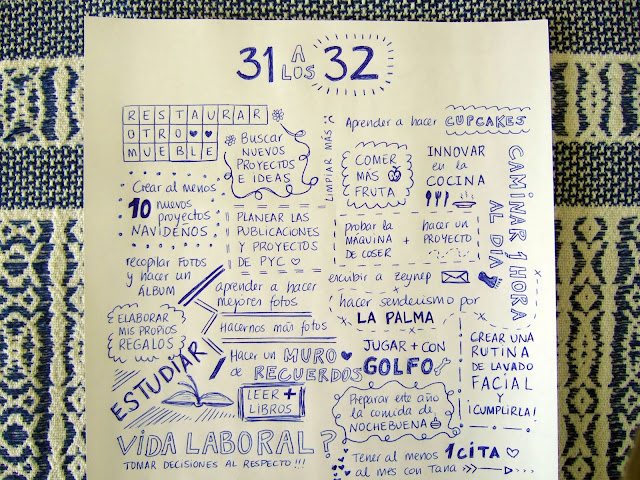 31 A LOS 32
RESTAURAR
OTRO
MUEBLE
Buscar
NUEVOS
PROYECTOS
E IDEAS
LIMPIAR MÁS :(
Aprender a hacer CUPCAKES
COMER
MÁS
FRUTA
INNOVAR
en la
COCINA
CAMINAR 1 HORA
AL DÍA
Crear al menos
10 nuevos
proyectos
NAVIDEÑOS
PLANEAR LAS
PUBLICACIONES
Y PROYECTOS
DE PYC
probar la
MÁQUINA
DE COSER
+
hacer un
PROYECTO
recopilar FOTOS
y hacer un
ÁLBUM
aprender a hacer
mejores fotos
escribir a Zeynep
ELABORAR
MIS PROPIOS
REGALOS
Hacernos más fotos
hacer senderismo por
LA PALMA
ESTUDIAR
Hacer un MURO
de RECUERDOS
JUGAR + CON
GOLFO
CREAR UNA
RUTINA
DE LAVADO
FACIAL
Y
¡CUMPLIRLA!
LEER +
LIBROS
Preparar este año
la comida de
NOCHEBUENA
VIDA LABORAL?
TOMAR DECISIONES AL RESPECTO!!!
Tener al menos 1 CITA
al mes con Tana